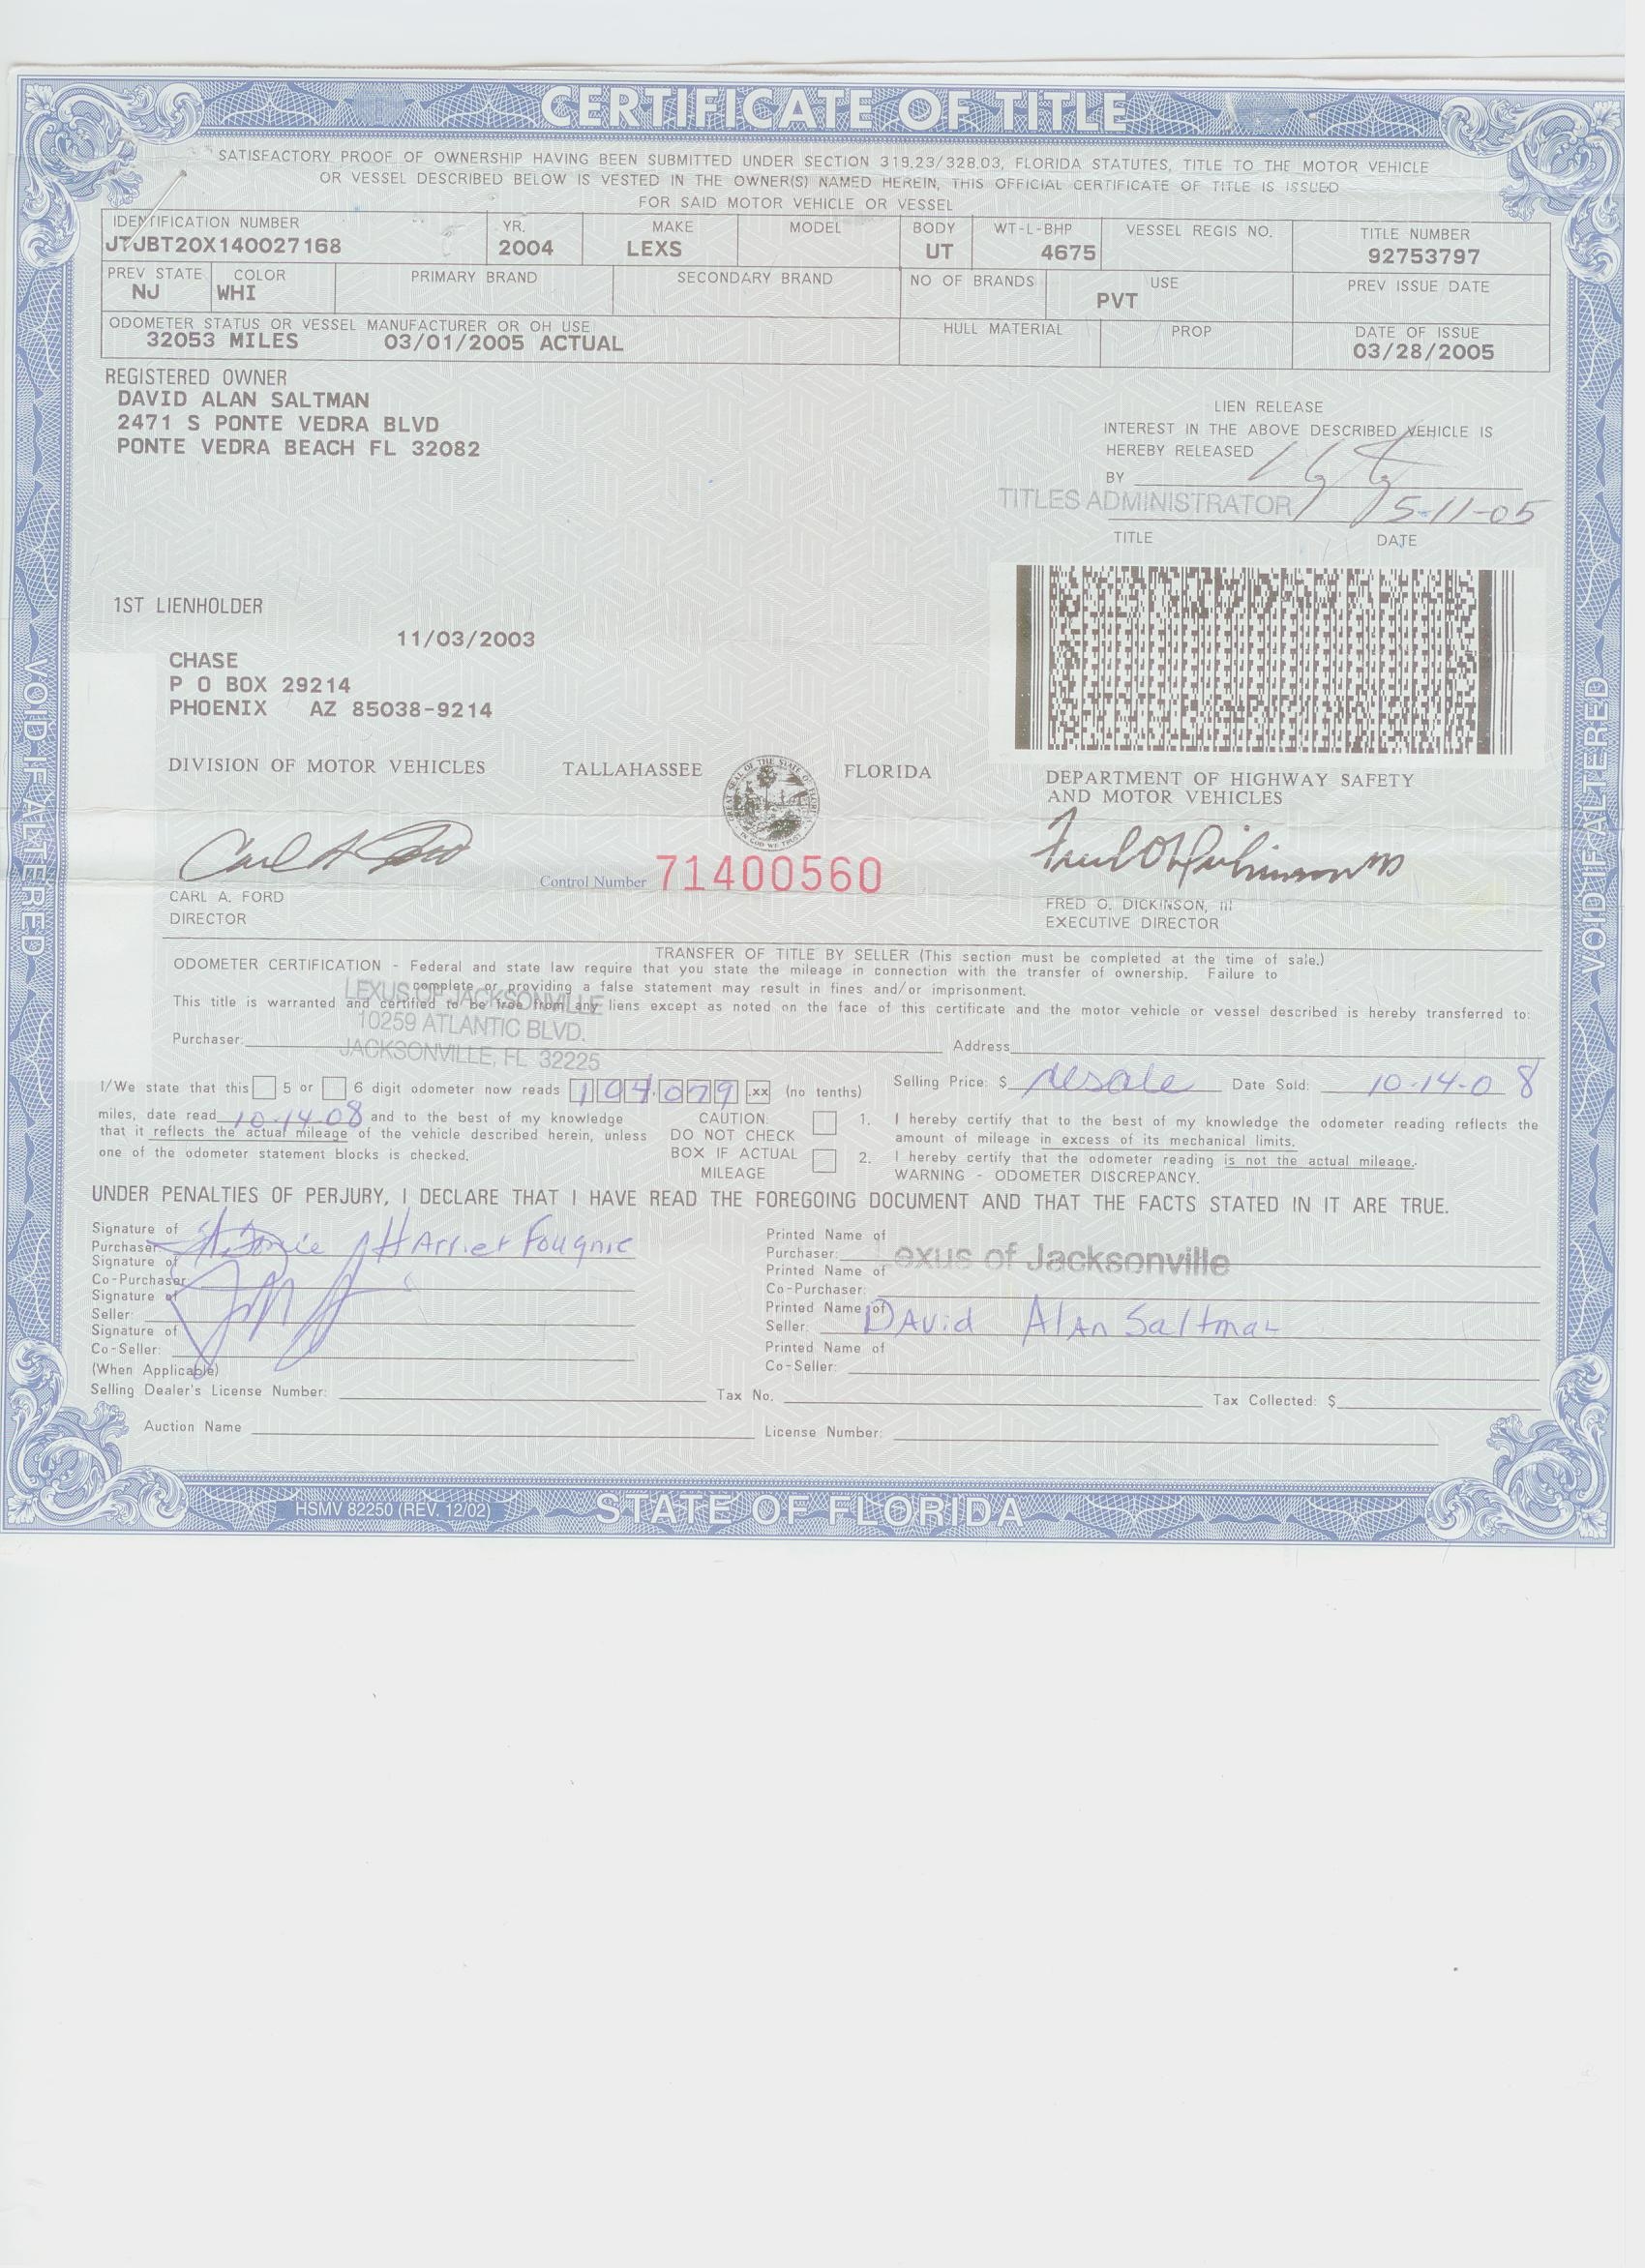 CERTIFICATE OF TITLE
SATISFACTORY PROOF OF OWNERSHIP HAVING BEEN SUBMITTED UNDER SECTION 319.23/328.03, FLORIDA STATUTES, TITLE TO THE MOTOR VEHICLE
OR VESSEL DESCRIBED BELOW IS VESTED IN THE OWNER(S) NAMED HEREIN, THIS OFFICIAL CERTIFICATE OF TITLE IS ISSUED
FOR SAID MOTOR VEHICLE OR VESSEL
IDENTIFICATION NUMBER YR. MAKE MODEL BODY WT-L-BHP VESSEL REGIS NO. TITLE NUMBER
JTJBT20X140027168 2004 LEXS UT 4675 92753797
PREV STATE COLOR PRIMARY BRAND SECONDARY BRAND NO OF BRANDS USE PREV ISSUE DATE
NJ WHI PVT
ODOMETER STATUS OR VESSEL MANUFACTURER OR OH USE HULL MATERIAL PROP DATE OF ISSUE
32053 MILES 03/01/2005 ACTUAL 03/28/2005
REGISTERED OWNER
DAVID ALAN SALTMAN
2471 S PONTE VEDRA BLVD
PONTE VEDRA BEACH FL 32082
LIEN RELEASE
INTEREST IN THE ABOVE DESCRIBED VEHICLE IS
HEREBY RELEASED
BY
TITLES ADMINISTRATOR 5-11-05
TITLE DATE
1ST LIENHOLDER
11/03/2003
CHASE
P O BOX 29214
PHOENIX AZ 85038-9214
DIVISION OF MOTOR VEHICLES TALLAHASSEE FLORIDA
DEPARTMENT OF HIGHWAY SAFETY
AND MOTOR VEHICLES
Control Number 71400560
CARL A. FORD
DIRECTOR
FRED O. DICKINSON, III
EXECUTIVE DIRECTOR
VOID IF ALTERED
VOID IF ALTERED
TRANSFER OF TITLE BY SELLER (This section must be completed at the time of sale.)
ODOMETER CERTIFICATION - Federal and state law require that you state the mileage in connection with the transfer of ownership. Failure to
complete or providing a false statement may result in fines and/or imprisonment.
This title is warranted and certified to be free from any liens except as noted on the face of this certificate and the motor vehicle or vessel described is hereby transferred to:
LEXUS OF JACKSONVILLE
10259 ATLANTIC BLVD.
JACKSONVILLE, FL 32225
Purchaser: Address
I/We state that this 5 or 6 digit odometer now reads 104,079 .xx (no tenths) Selling Price: $ resale Date Sold: 10-14-08
miles, date read 10-14-08 and to the best of my knowledge
that it reflects the actual mileage of the vehicle described herein, unless
one of the odometer statement blocks is checked.
CAUTION:
DO NOT CHECK
BOX IF ACTUAL
MILEAGE
1. I hereby certify that to the best of my knowledge the odometer reading reflects the
amount of mileage in excess of its mechanical limits.
2. I hereby certify that the odometer reading is not the actual mileage.
WARNING - ODOMETER DISCREPANCY.
UNDER PENALTIES OF PERJURY, I DECLARE THAT I HAVE READ THE FOREGOING DOCUMENT AND THAT THE FACTS STATED IN IT ARE TRUE.
Signature of
Purchaser: Harriet Fougnie
Signature of
Co-Purchaser
Signature of
Seller:
Signature of
Co-Seller:
(When Applicable)
Printed Name of
Purchaser: exus of Jacksonville
Printed Name of
Co-Purchaser:
Printed Name of
Seller: David Alan Saltman
Printed Name of
Co-Seller:
Selling Dealer's License Number: Tax No. Tax Collected: $
Auction Name License Number:
HSMV 82250 (REV. 12/02) STATE OF FLORIDA